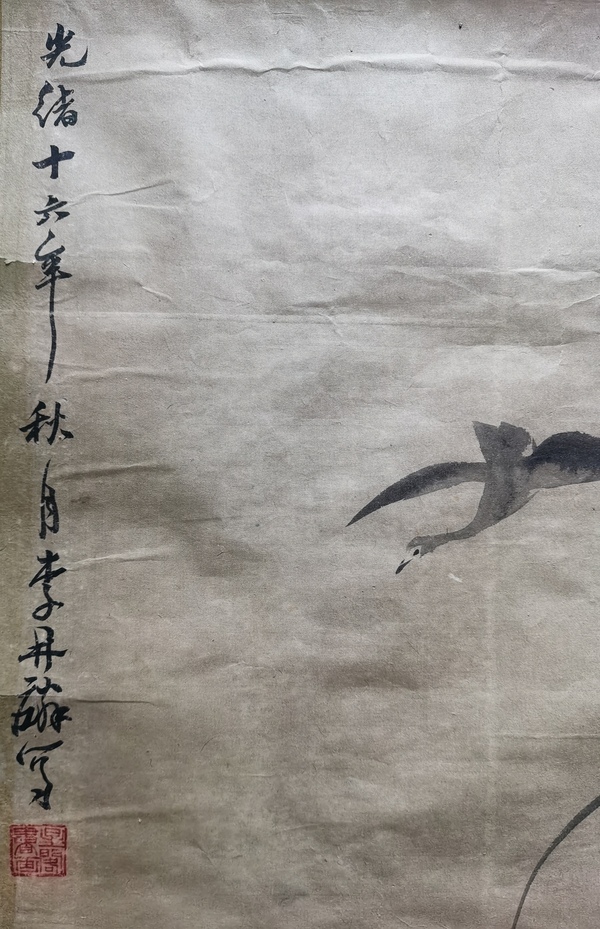 光緒十六年秋月李丹麟寫